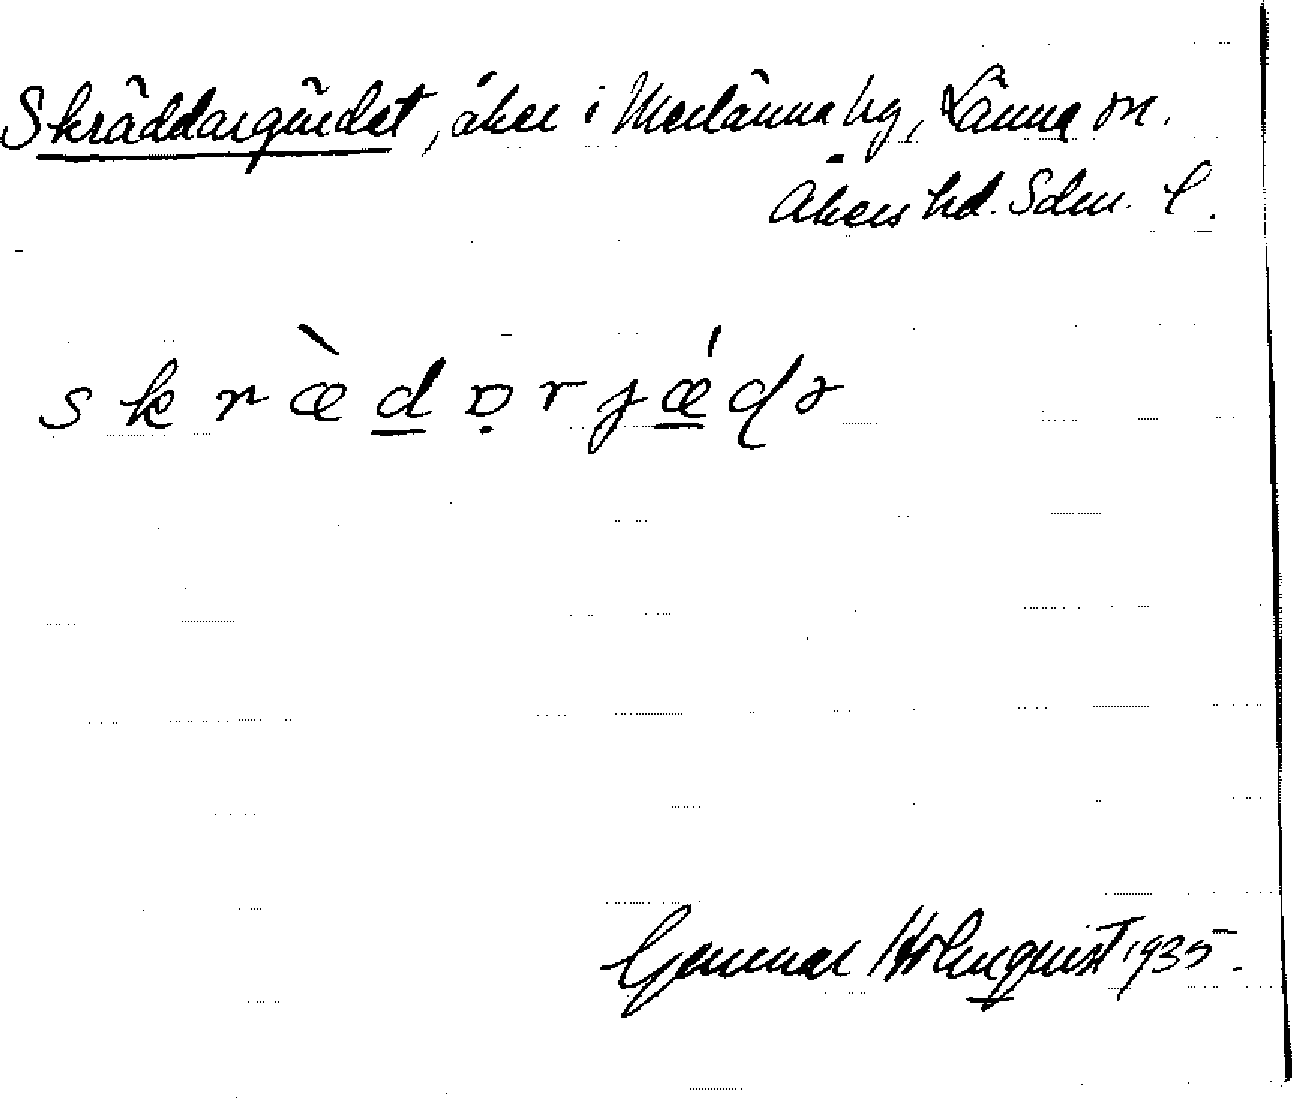 Skräddargärdet, åker i Merlänna by, Länna sn.
Åkers hd. Sdm. l.
skræ̀dɒ̣rjǽdə
Gunnar Holmquist 1935.